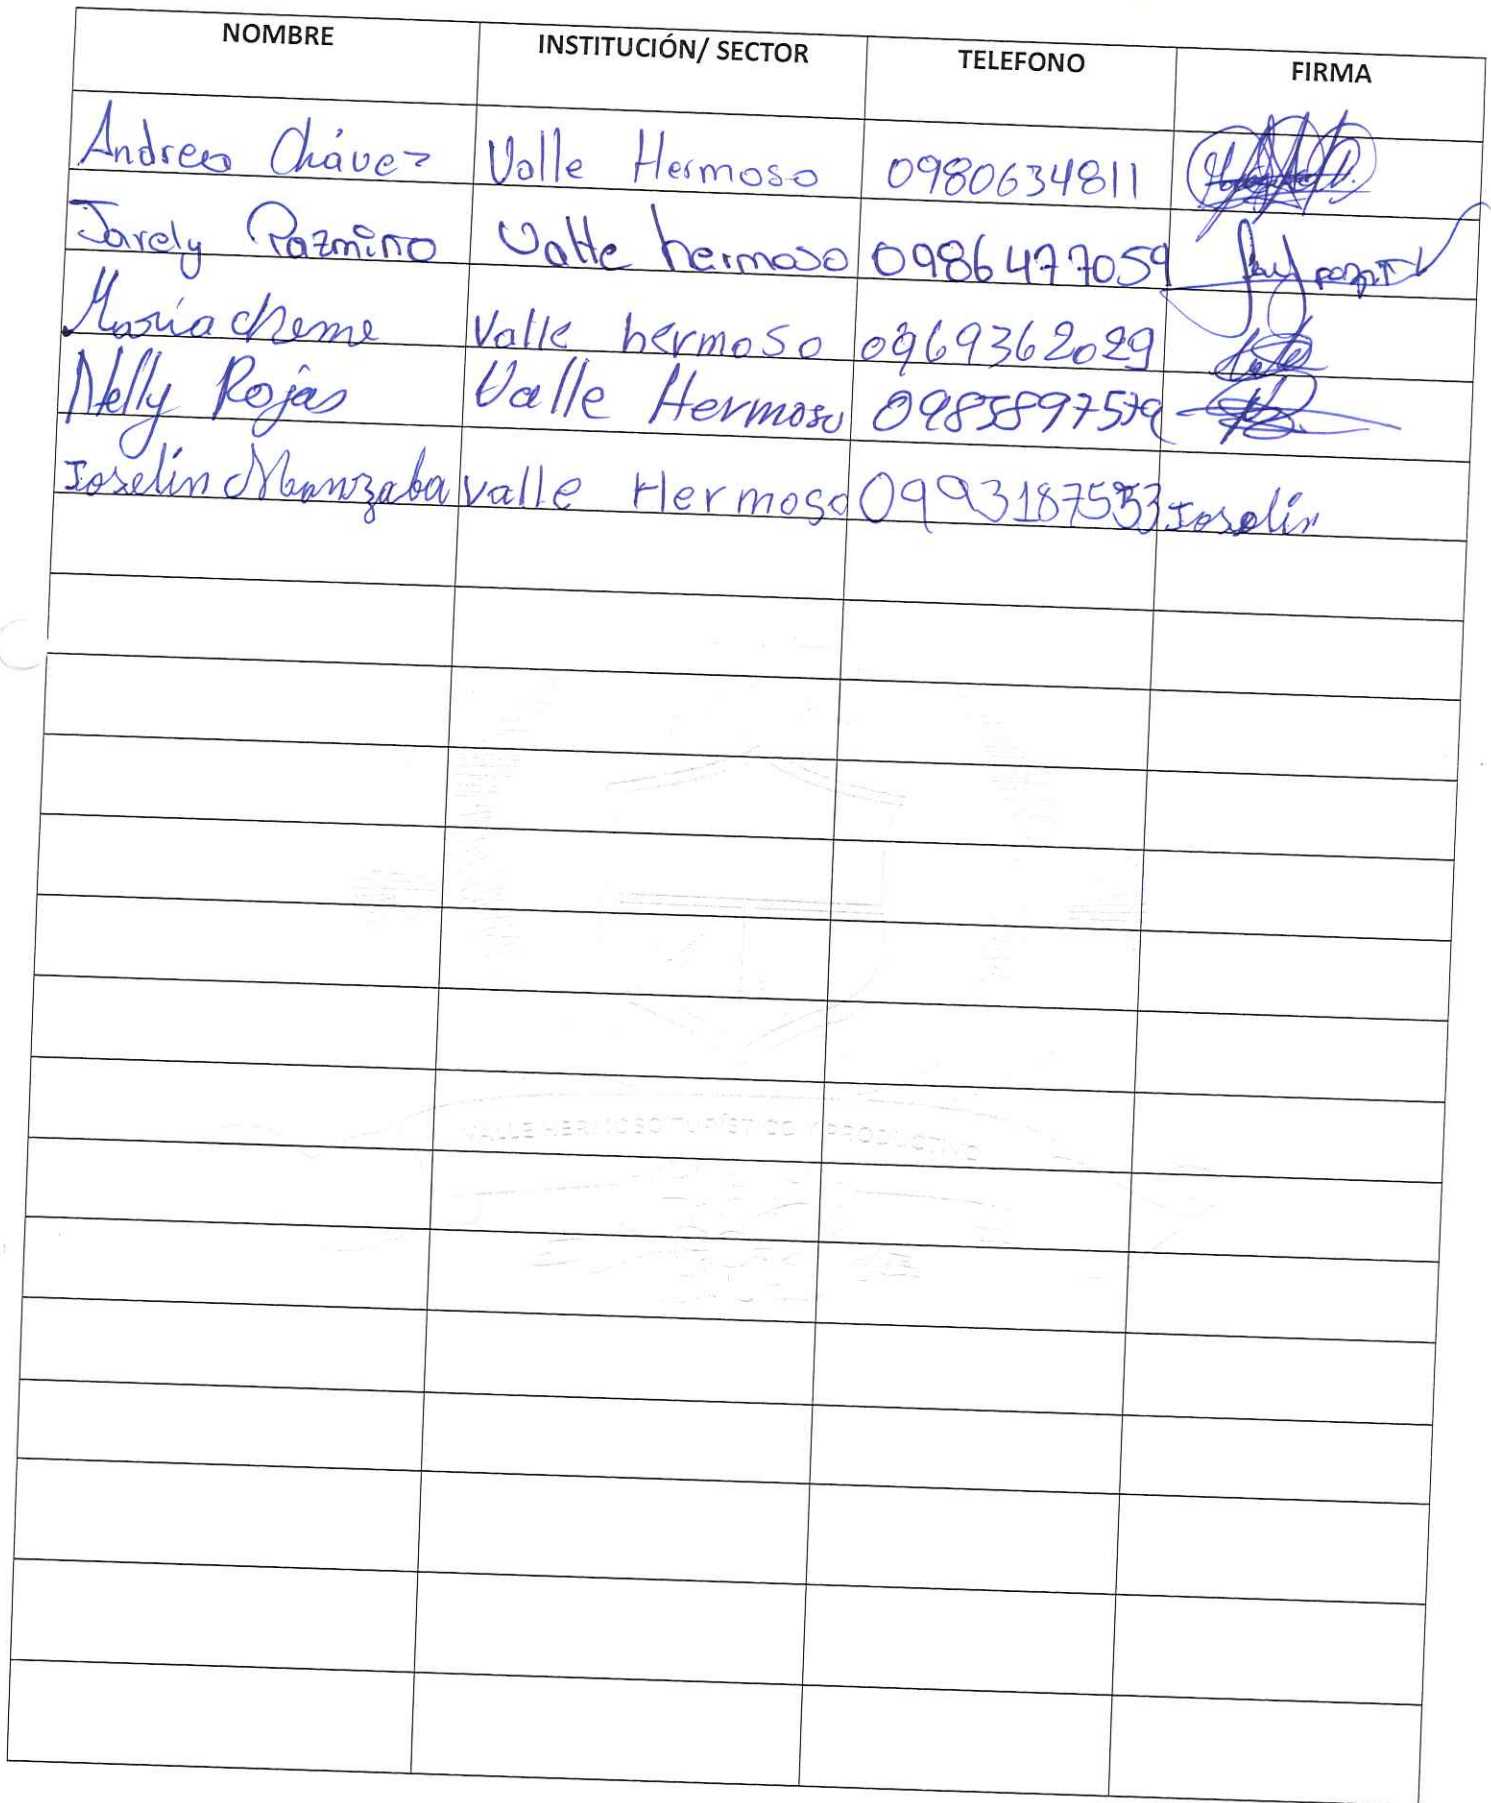 NOMBRE INSTITUCIÓN/ SECTOR TELEFONO FIRMA
Andrea Chávez Valle Hermoso 0980634811
Jarely Pazmiño Valle hermoso 0986477059
María cheme Valle hermoso 0969362029
Nelly Rojas Valle Hermoso 0985897579
Joselin Manzaba valle Hermoso 0993187553 Joselin